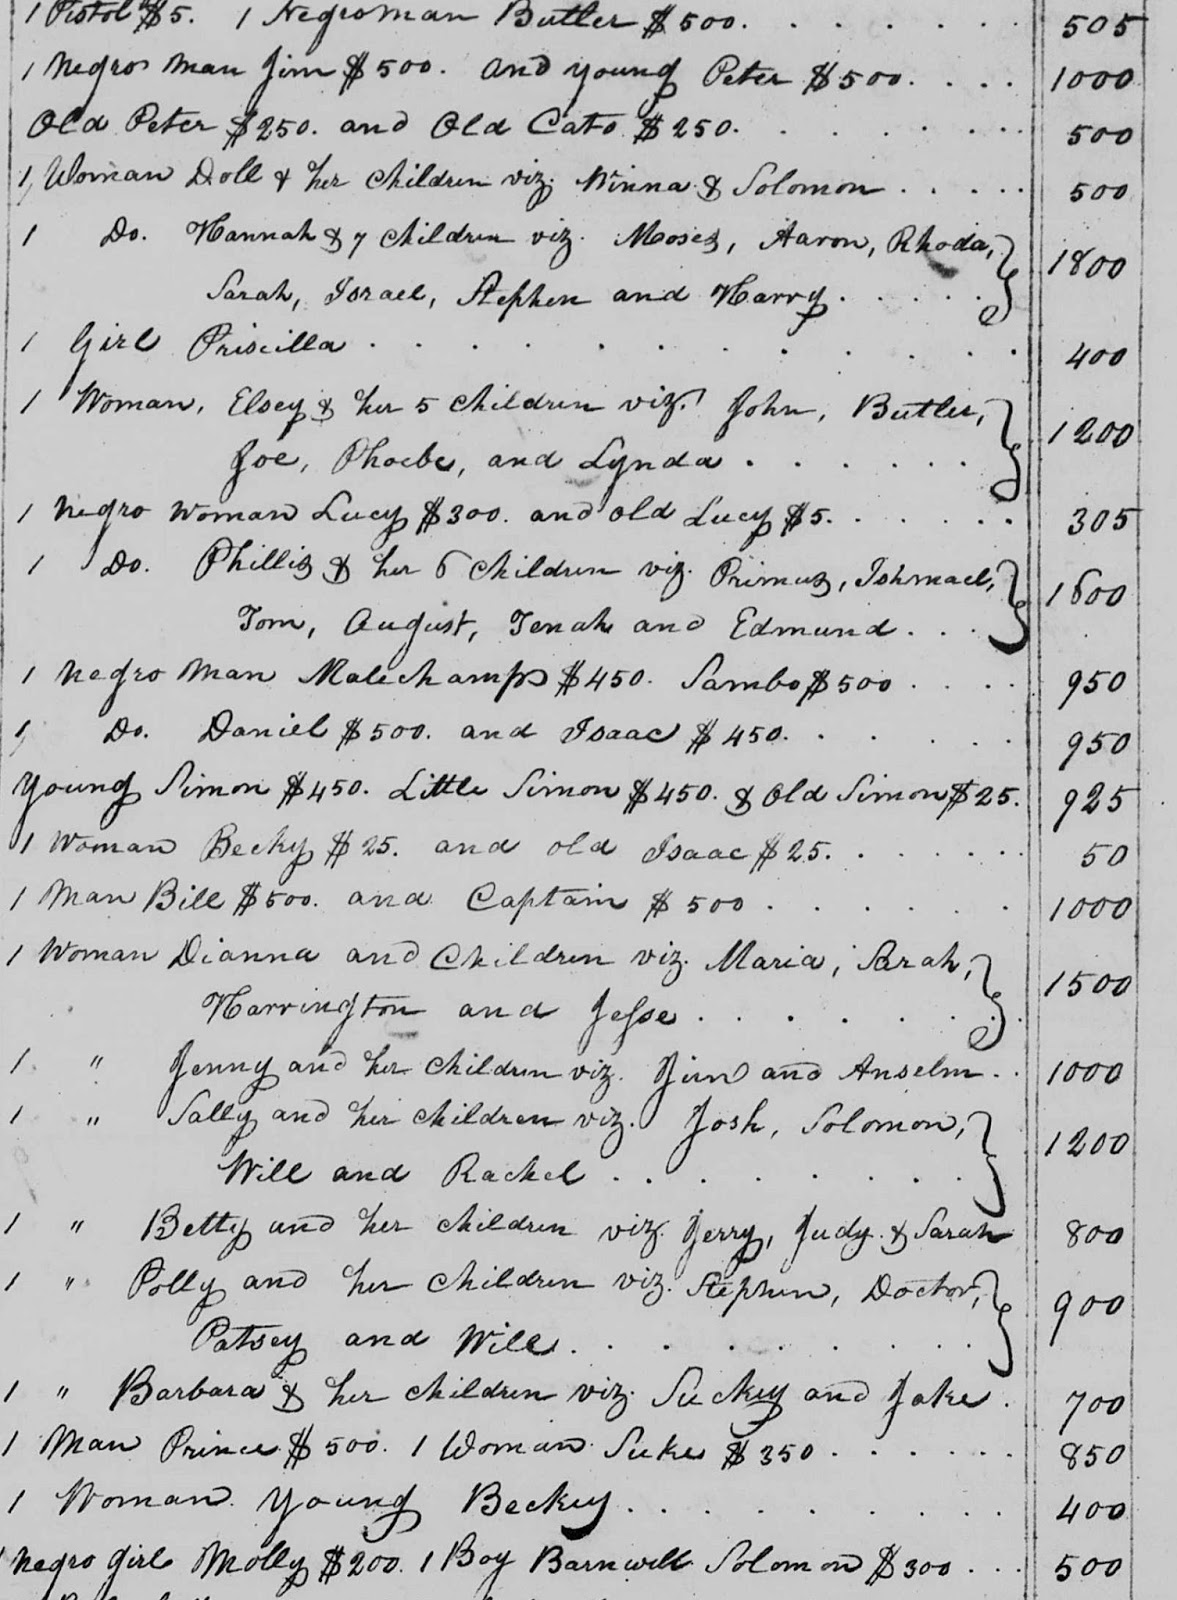 1 Pistol $5. 1 Negro man Butler $500. 505
1 Negro man Jim $500. and young Peter $500. 1000
Old Peter $250. and Old Cato $250. 500
1 Woman Doll & her children viz. Winna & Solomon 500
1 Do. Hannah & 7 children viz. Moses, Aaron, Rhoda, 1800
Sarah, Israel, Stephen and Harry
1 Girl Priscilla 400
1 Woman, Elsey & her 5 children viz. John, Butler, 1200
Joe, Phoebe, and Lynda
1 negro woman Lucy $300. and old Lucy $5. 305
1 Do. Phillis & her 6 children viz. Primus, Ishmael, 1600
Tom, August, Tenah and Edmund
1 Negro man $450. Sambo $500 950
1 Do. Daniel $500. and Isaac $450. 950
Young Simon $450. Little Simon $450. & Old Simon $25. 925
1 Woman Becky $25. and old Isaac $25. 50
1 Man Bill $500. and Captain $500 1000
1 Woman Dianna and Children viz. Maria, Sarah, 1500
Harrington and Jesse
1 " Jenny and her children viz. Jim and Anselm 1000
1 " Sally and her children viz. Josh, Solomon, 1200
Will and Rachel
1 " Betty and her children viz. Jerry, Judy & Sarah 800
1 " Polly and her children viz. Stephen, Doctor, 900
Patsey and Will
1 " Barbara & her children viz. Suckey and Jake 700
1 Man Prince $500. 1 Woman Suke $350 850
1 Woman Young Beckey 400
1 Negro Girl Molly $200. 1 Boy Barnwell Solomon $300 500